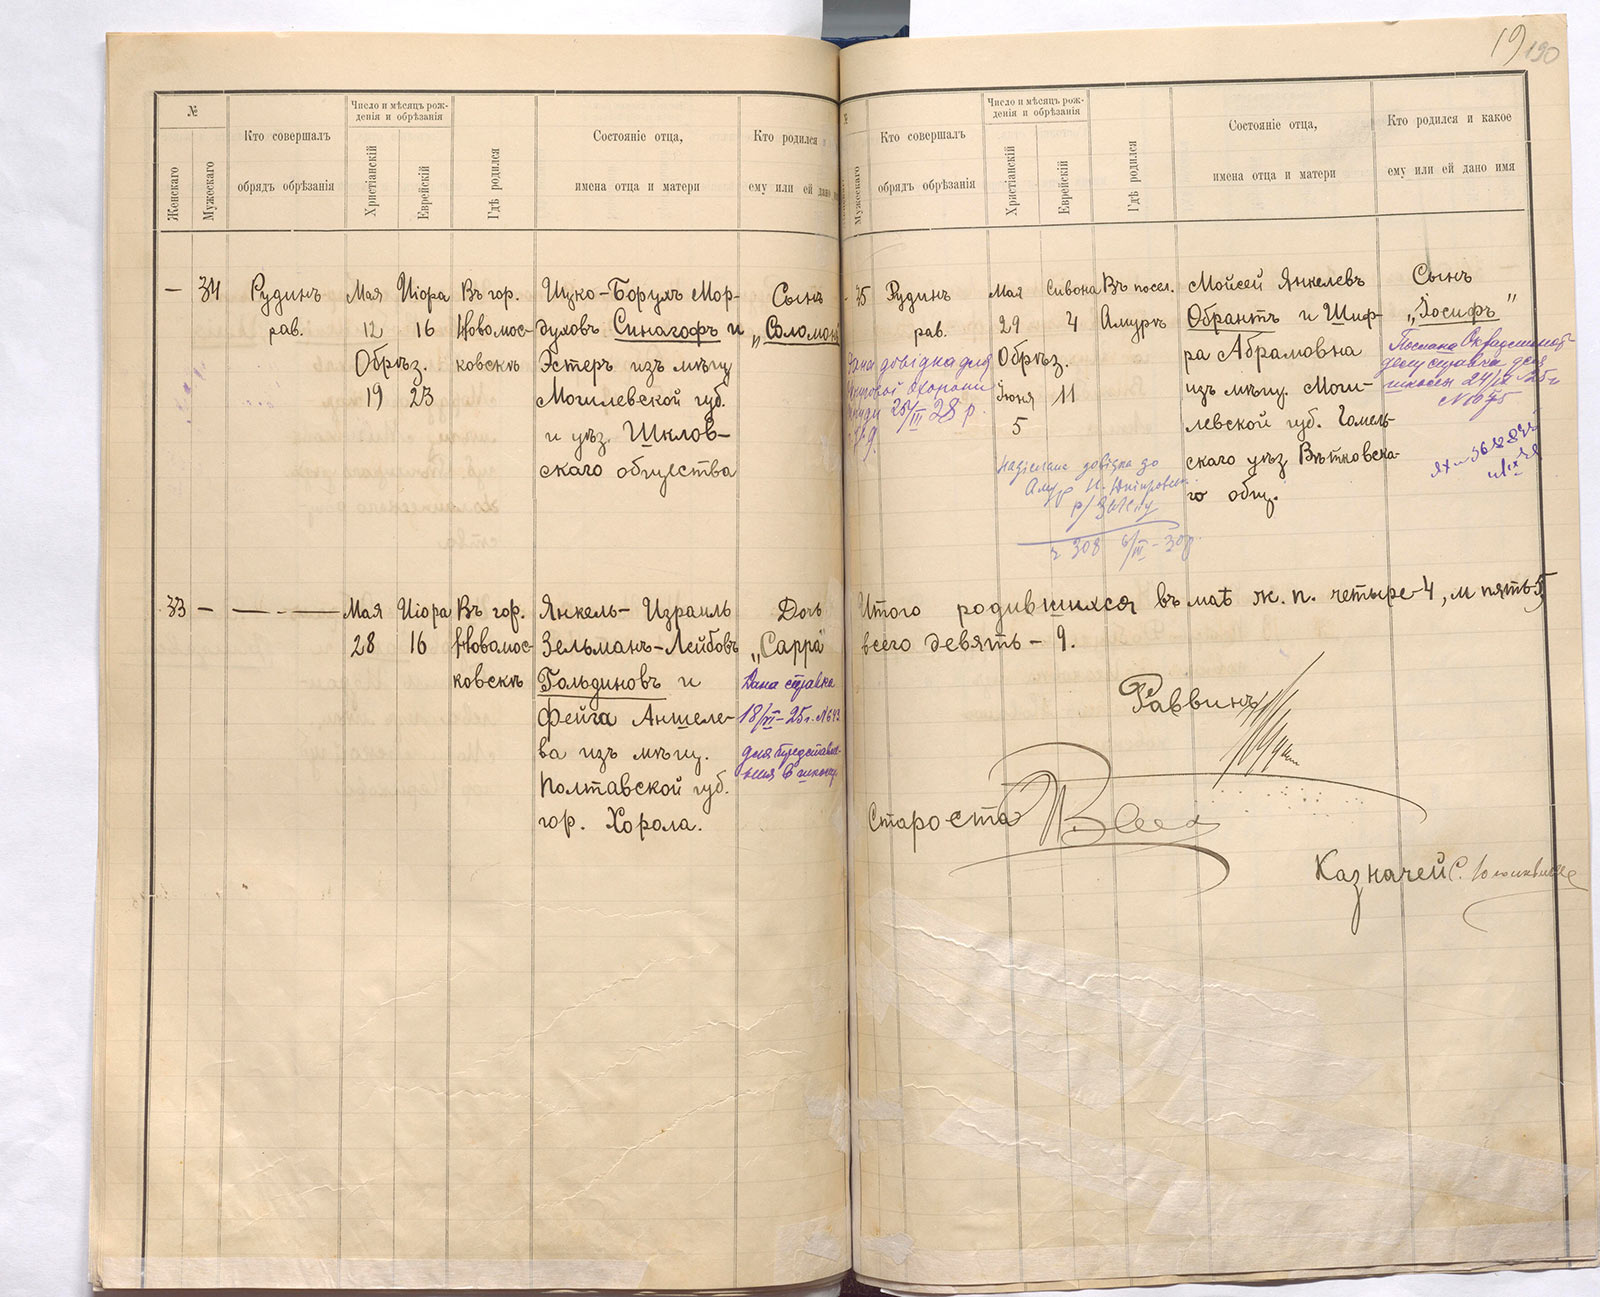 19 190
№
Женскаго
Мужескаго
Кто совершалъ
обрядъ обрѣзанія
Число и мѣсяцъ рож-
денія и обрѣзанія
Христіанскій
Еврейскій
Гдѣ родился
Состояніе отца,
имена отца и матери
Кто родился и
ему или ей дано
— 34
Рудинъ
рав.
Мая Иіора
12 16
Обрѣз.
19 23
Въ гор.
Новомос-
ковскѣ
Ицко-Борухъ Мор-
духовъ Синагофъ и
Эстеръ изъ мѣщ
Могилевской губ.
и уѣз. Шклов-
скаго общества
Сынъ
„Соломонъ
33 — — - —
Мая Иіора
28 16
Въ гор.
Новомос-
ковскѣ
Янкель-Израиль
Зельманъ-Лейбовъ
Гольдиновъ и
Фейга Аншеле-
ва изъ мѣщ.
Полтавской губ.
гор. Хорола.
Дочь
„Сарра"
Дана справка
18/VI-25г. №643
для представле-
ния в школу
Мужескаго
Кто совершалъ
обрядъ обрѣзанія
Число и мѣсяцъ рож-
денія и обрѣзанія
Христіанскій
Еврейскій
Гдѣ родился
Состояніе отца,
имена отца и матери
Кто родился и какое
ему или ей дано имя
- 35
Рудинъ
рав.
довідка для
охорони
25/III 28 р.
Мая Сивона
29 4
Обрѣз.
Іюня 11
5
Въ посел.
Амурѣ
Мойсей Янкелевъ
Обрантъ и Шиф-
ра Абрамовна
изъ мѣщ. Моги-
левской губ. Гомель-
скаго уѣз Вѣтковска-
го общ.
Сынъ
„Іосифъ"
Послана
справка для
школы 24/IX 25г
Надіслано довідка до
Амур Н. Дніпровськ.
р/ЗАГСу
ч 308 6/IV-30р.
Итого родившихся въ маѣ ж. п. четыре-4, м пять-5
всего девять - 9.
Раввинъ
Староста
Казначей С.